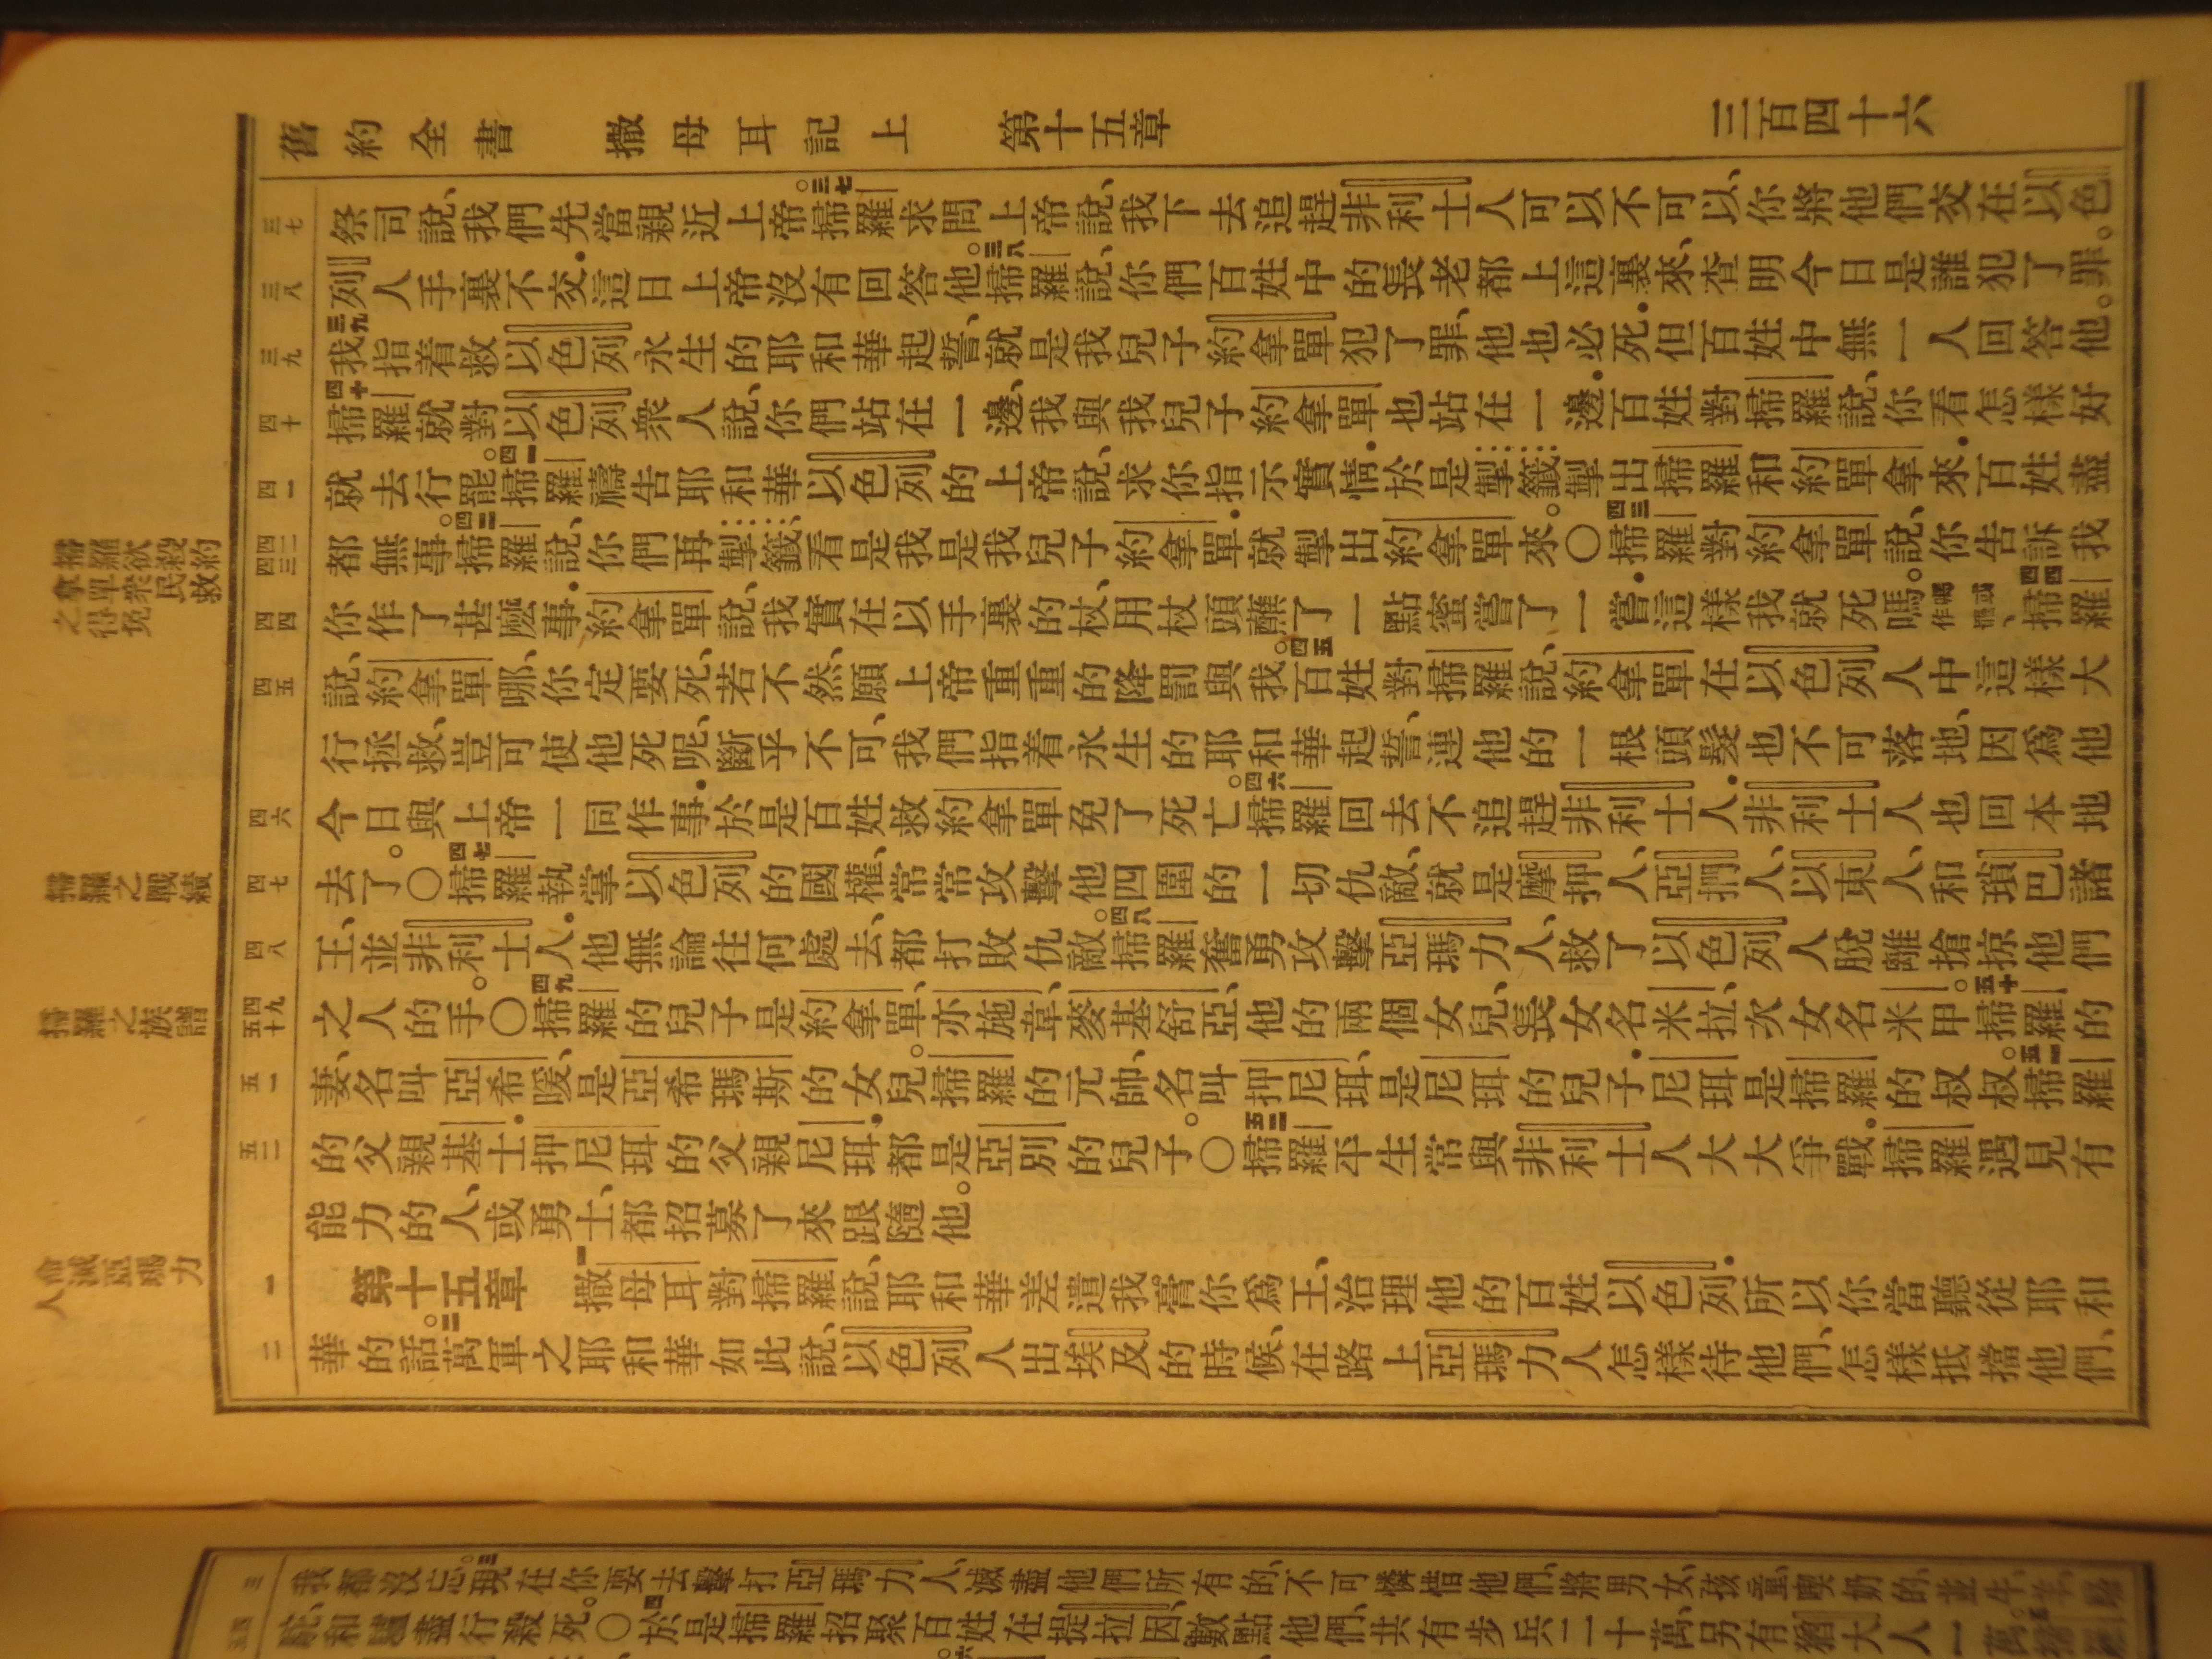 舊約全書 撒母耳記上 第十五章 三百四十六
三七
祭司說、我們先當親近上帝。三七掃羅求問上帝說、我下去追趕非利士人可以不可以、你將他們交在以色
三八
列人手裏不交．這日上帝沒有回答他。三八掃羅說、你們百姓中的長老都上這裏來、查明今日是誰犯了罪。
三九
三九我指着救以色列永生的耶和華起誓、就是我兒子約拿單犯了罪、他也必死．但百姓中無一人回答他。
四十
四十掃羅就對以色列衆人說、你們站在一邊、我與我兒子約拿單也站在一邊．百姓對掃羅說、你看怎樣好
四一
就去行罷。四一掃羅禱告耶和華以色列的上帝說、求你指示實情．於是掣籤掣出掃羅和約單拿來．百姓盡
四二 四三
都無事。四二掃羅說、你們再掣籤、看是我是我兒子約拿單．就掣出約拿單來。〇四三掃羅對約拿單說、你告訴我
四四
你作了甚麽事．約拿單說、我實在以手裏的杖、用杖頭蘸了一點蜜嘗了一嘗．這樣我就死嗎。四四掃羅
四五
說、約拿單哪、你定要死、若不然、願上帝重重的降罰與我。四五百姓對掃羅說、約拿單在以色列人中這樣大
行拯救、豈可使他死呢、斷乎不可、我們指着永生的耶和華起誓、連他的一根頭髮也不可落地、因爲他
四六
今日與上帝一同作事．於是百姓救約拿單免了死亡。四六掃羅回去不追趕非利士人．非利士人也回本地
四七
去了。〇四七掃羅執掌以色列的國權、常常攻擊他四圍的一切仇敵、就是摩押人、亞捫人、以東人、和瑣巴諸
四八
王、並非利士人．他無論往何處去、都打敗仇敵。四八掃羅奮勇攻擊亞瑪力人、救了以色列人脫離搶掠他們
四九 五十
之人的手。〇四九掃羅的兒子是約拿單、亦施韋、麥基舒亞、他的兩個女兒、長女名米拉、次女名米甲。五十掃羅的
五一
妻、名叫亞希暖、是亞希瑪斯的女兒。掃羅的元帥、名叫押尼珥、是尼珥的兒子．尼珥是掃羅的叔叔。五一掃羅
五二
的父親基士．押尼珥的父親尼珥、都是亞別的兒子。〇五二掃羅平生常與非利士人大大爭戰．掃羅遇見有
能力的人、或勇士、都招募了來跟隨他。
一
第十五章 一撒母耳對掃羅說、耶和華差遣我膏你爲王、治理他的百姓以色列．所以你當聽從耶和
二
華的話。二萬軍之耶和華如此說、以色列人出埃及的時候、在路上亞瑪力人怎樣待他們、怎樣抵擋他們、
掃羅欲殺約
拿單衆民救
之得免
掃羅之戰績
掃羅之族譜
命滅亞瑪力
人
三
我都沒忘。三現在你要去擊打亞瑪力人、滅盡他們所有的、不可憐惜他們、將男女、孩童、喫奶的、並牛、羊、
駝、和驢盡行殺死。〇四於是掃羅招聚百姓在提拉因、數點他們、共有步兵二十萬、另有猶大人一萬。